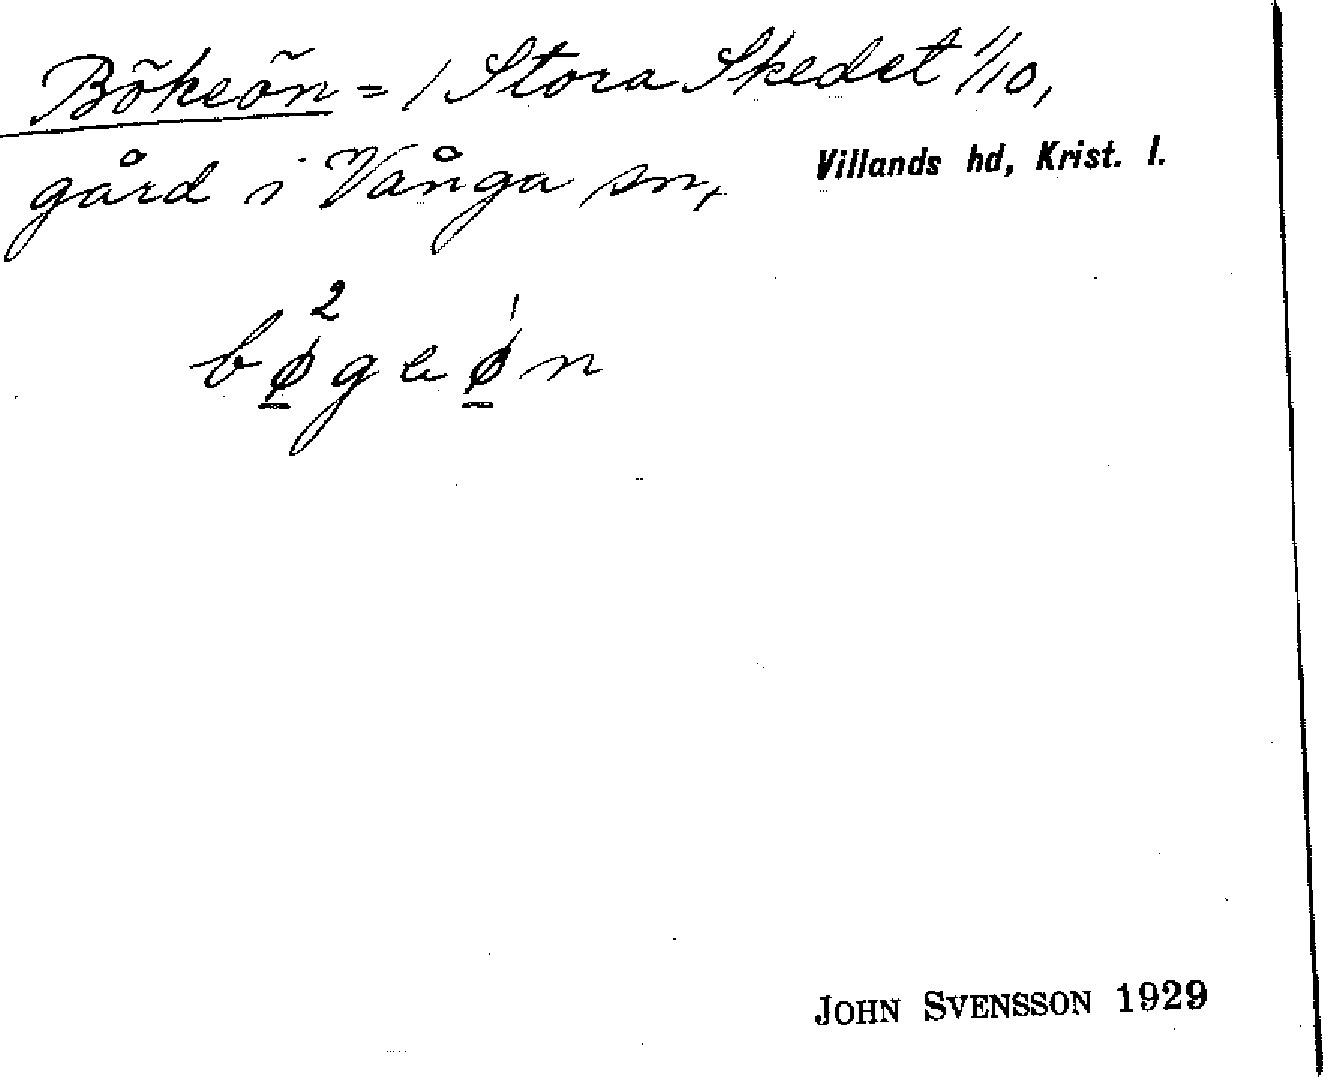 Bökeön = / Stora Skedet 1/10,
gård i Vånga sn, Villands hd, Krist. l.
bø²geø'n
JOHN SVENSSON 1929